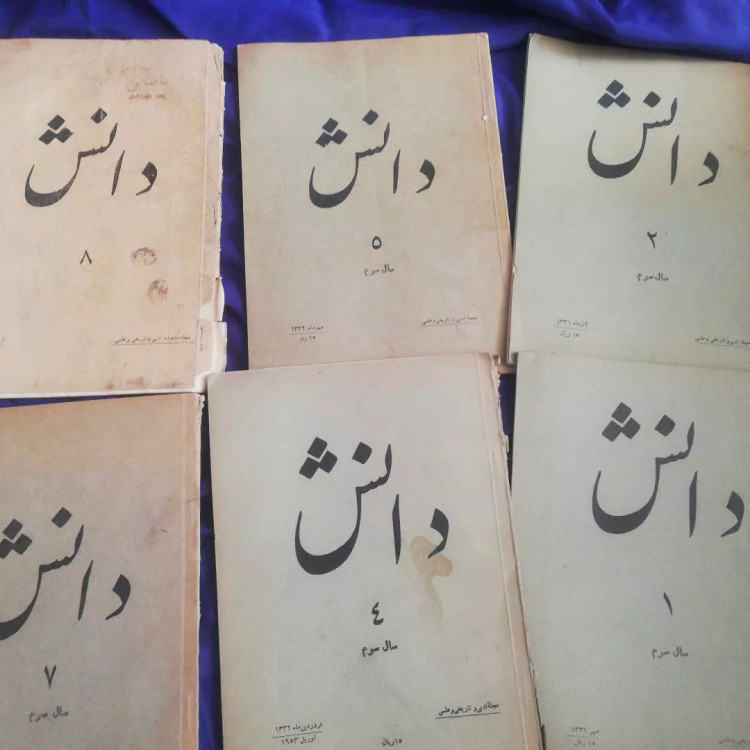 دانش
۸
مجله ماهیانه ادبی و تاریخی و علمی
دانش
۵
سال سوم
مجله ادبی و تاریخی و علمی
مهرماه ۱۳۳۲
۱۵ ریال
دانش
۲
سال سوم
مجله ادبی و تاریخی و علمی
آذرماه ۱۳۳۱
۱۵ ریال
دانش
۷
سال سوم
دانش
۴
سال سوم
مجلهٔ ادبی و تاریخی و علمی
فروردین ماه ۱۳۳۲
آوریل ۱۹۵۳
۱۵ ریال
دانش
۱
سال سوم
مهر ۱۳۳۱
۱۵ ریال